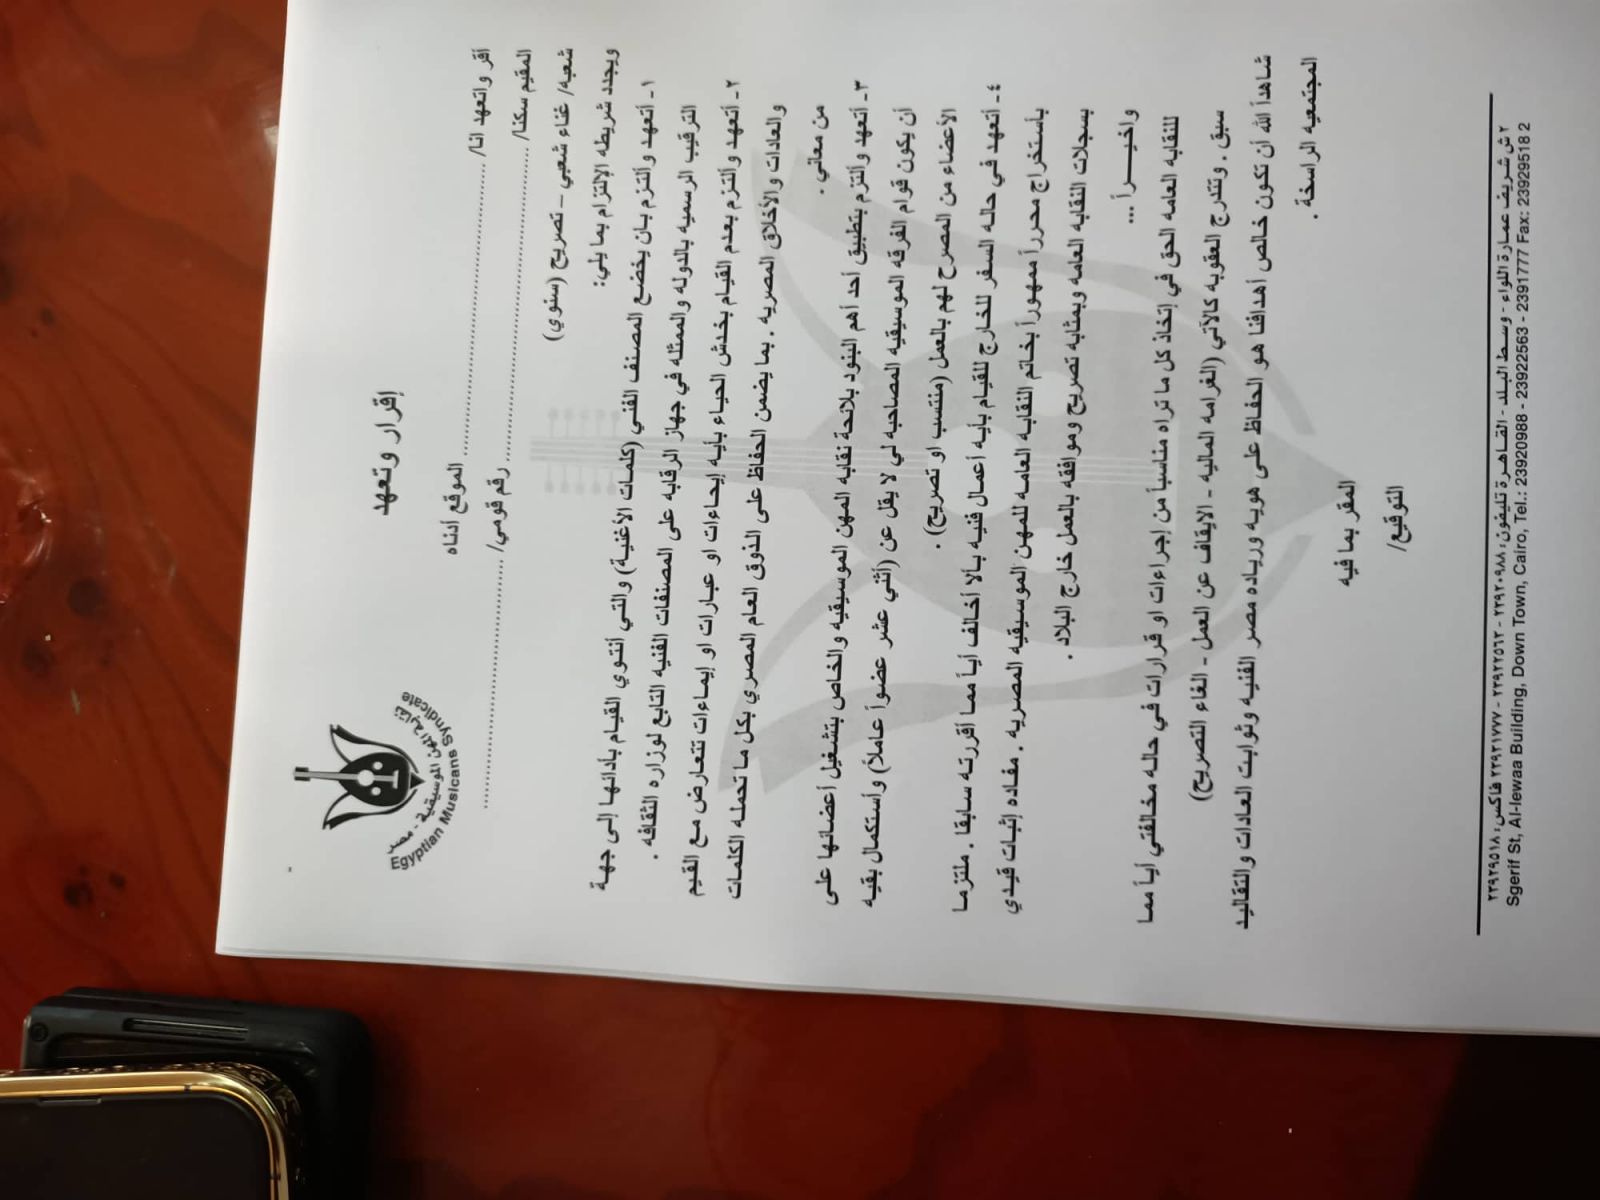 نقابة المهن الموسيقية - مصر
Egyptian Musicans Syndicate
إقرار وتعهد
أقر واتعهد انا/ .......................................... الموقع أدناه
المقيم سكنا/ .......................................... رقم قومي/ ..........................................
شعبه/ غناء شعبي – تصريح (سنوي)
ويجدد شريطه الإلتزام بما يلي:
١- أتعهد وألتزم بان يخضع المصنف الفني (كلمات الأغنية) والتي أنتوي القيام بأدائها إلى جهة
الترقيب الرسميه بالدوله والممثله في جهاز الرقابه على المصنفات الفنيه التابع لوزاره الثقافه .
٢- أتعهد وألتزم بعدم القيام بخدش الحياء بأيه إيحاءات او عبارات او إيماءات تتعارض مع القيم
والعادات والأخلاق المصريه . بما يضمن الحفاظ على الذوق العام المصري بكل ما تحمله الكلمات
من معاني .
٣- أتعهد وألتزم بتطبيق أحد أهم البنود بلائحة نقابه المهن الموسيقيه والخاص بتشغيل أعضائها على
أن يكون قوام الفرقه الموسيقيه المصاحبه لي لا يقل عن (أثني عشر عضواً عاملاً) وأستكمال بقيه
الأعضاء من المصرح لهم بالعمل (منتسب او تصريح) .
٤- أتعهد في حاله السفر للخارج للقيام بأيه أعمال فنيه بألا أخالف أياً مما أقررته سابقا . ملتزما
بأستخراج محرراً ممهوراً بخاتم النقابه العامه للمهن الموسيقيه المصريه . مفاده إثبات قيدي
بسجلات النقابه العامه وبمثابه تصريح وموافقه بالعمل خارج البلاد .
واخيـــراً ...
للنقابه العامه الحق في إتخاذ كل ما تراه مناسباً من إجراءات او قرارات في حاله مخالفتي أياً مما
سبق . وتتدرج العقوبه كالآتي (الغرامه الماليه - الايقاف عن العمل - الغاء التصريح)
شاهداً الله أن تكون خالص أهدافنا هو الحفاظ على هويه ورياده مصر الفنيه وثوابت العادات والتقاليد
المجتمعيه الراسخة .
المقر بما فيه
التوقيع/
٢ ش شريف عمارة اللواء - وسط البلد - القاهرة تليفون: ٢٣٩٢٠٩٨٨ - ٢٣٩٢٢٥٦٣ - ٢٣٩٢١٧٧٧ فاكس: ٢٣٩٢٩٥١٨
Sgerif St, Al-lewaa Building, Down Town, Cairo, Tel.: 23920988 - 23922563 - 2391777 Fax: 23929518 2